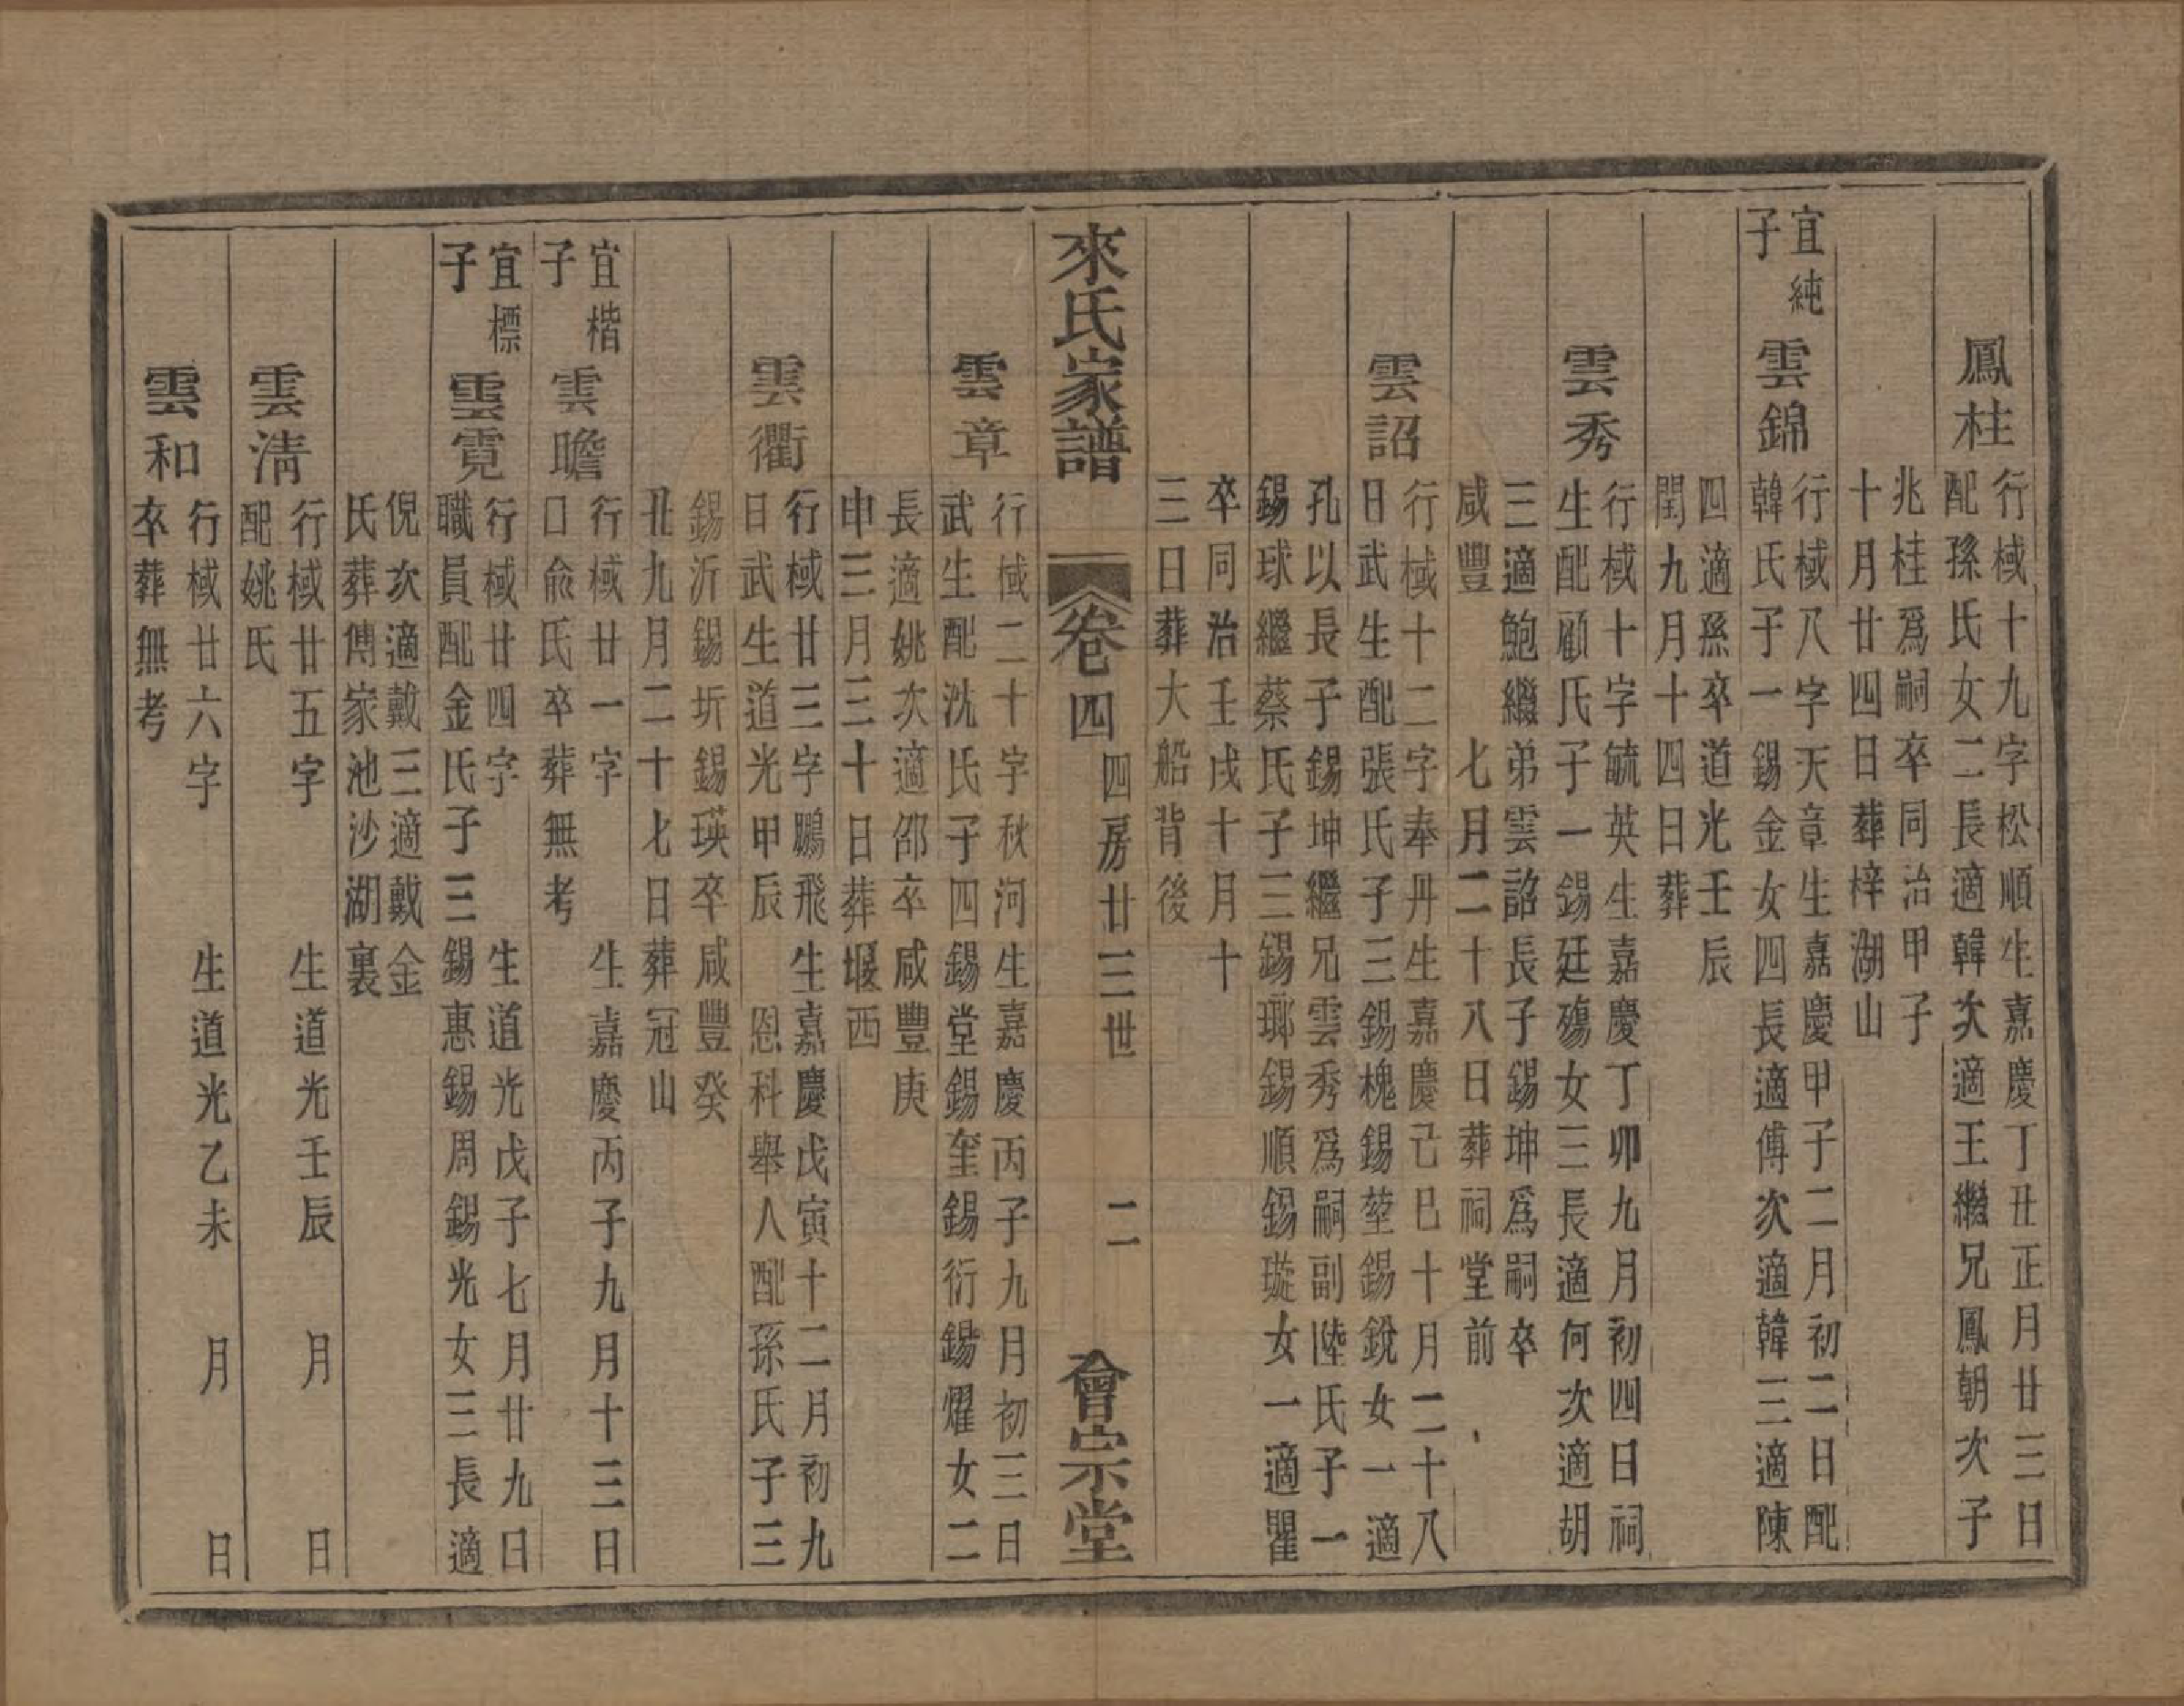 鳳柱
行棫十九字松順生嘉慶丁丑正月廿三日
配孫氏女二長適韓次適王繼兄鳳朝次子
兆桂爲嗣卒同治甲子
十月廿四日葬梓湖山
宜純
子
雲錦
行棫八字天章生嘉慶甲子二月初二日配
韓氏子一錫金女四長適傅次適韓三適陳
四適孫卒道光壬辰
閏九月十四日葬
雲秀
行棫十字毓英生嘉慶丁卯九月初四日祠
生配顧氏子一錫廷殤女三長適何次適胡
三適鮑繼弟雲詔長子錫坤爲嗣卒
咸豐　　七月二十八日葬祠堂前
雲詔
行棫十二字奉丹生嘉慶己巳十月二十八
日武生配張氏子三錫槐錫堃錫銳女一適
孔以長子錫坤繼兄雲秀爲嗣副陸氏子一
錫球繼蔡氏子三錫瑯錫順錫璇女一適瞿
卒同治壬戌十月十
三日葬大船背後
來氏家譜
卷四
四房廿三世
二
會宗堂
雲章
行棫二十字秋河生嘉慶丙子九月初三日
武生配沈氏子四錫堂錫奎錫衍錫燿女二
長適姚次適邵卒咸豐庚
申三月三十日葬堰西
雲衢
行棫廿三字鵬飛生嘉慶戊寅十二月初九
日武生道光甲辰　恩科舉人配孫氏子三
錫沂錫圻錫瑛卒咸豐癸
丑九月二十七日葬冠山
宜楷
子
雲瞻
行棫廿一字　　生嘉慶丙子九月十三日
口俞氏卒葬無考
宜標
子
雲霓
行棫廿四字　　生道光戊子七月廿九日
職員配金氏子三錫惠錫周錫光女三長適
倪次適戴三適戴金
氏葬傅家池沙湖裏
雲清
行棫廿五字　　生道光壬辰　月　　日
配姚氏
雲和
行棫廿六字　　生道光乙未　月　　日
卒葬無考